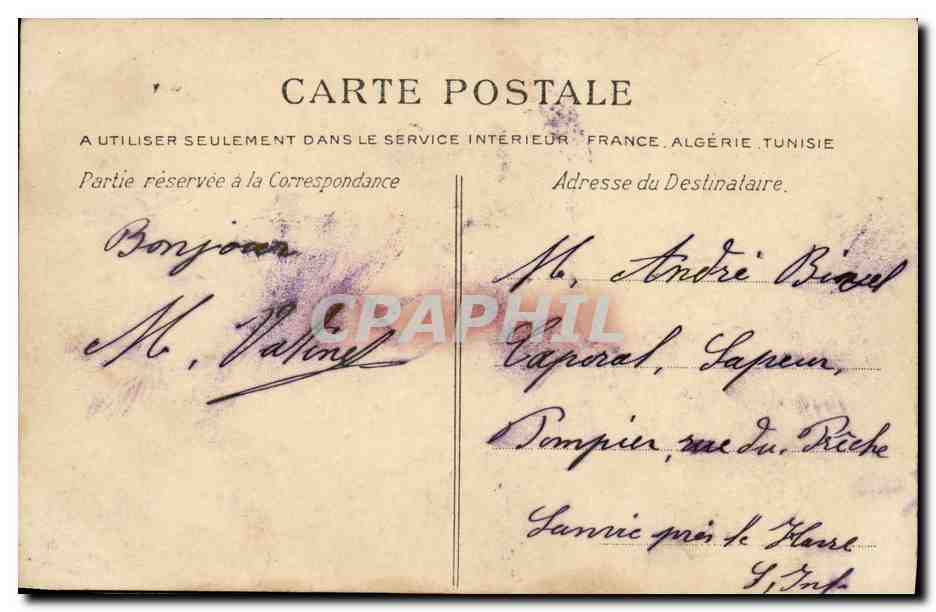 CARTE POSTALE
A UTILISER SEULEMENT DANS LE SERVICE INTÉRIEUR FRANCE, ALGÉRIE, TUNISIE
Partie réservée à la Correspondance
Bonjour
M, Vatinel
Adresse du Destinataire.
M, André
Caporal, Sapeur,
Pompier, rue du Prêche
Sanvic près le Havre
S, Inf
CPAPHIL